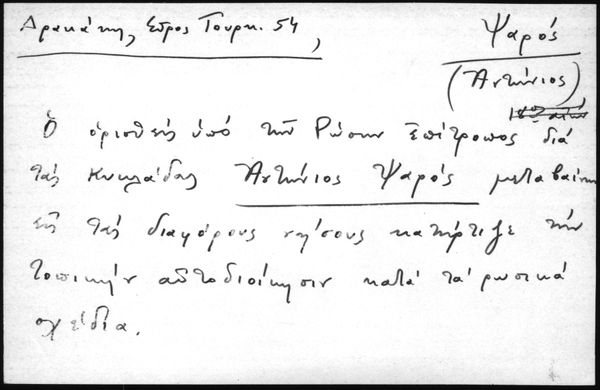 Δρακάκη, Σύρος Τουρκ. 54,
Ψαρός
(Ἀντώνιος)
Ὁ ὁρισθείς ὑπό τῶν Ρώσων Ἐπίτροπος διά
τάς Κυκλάδας Ἀντώνιος Ψαρός μεταβαίνων
εἰς τάς διαφόρους νήσους κατήρτιζε τήν
τοπικήν αὐτοδιοίκησιν κατά τά ρωσικά
σχέδια.